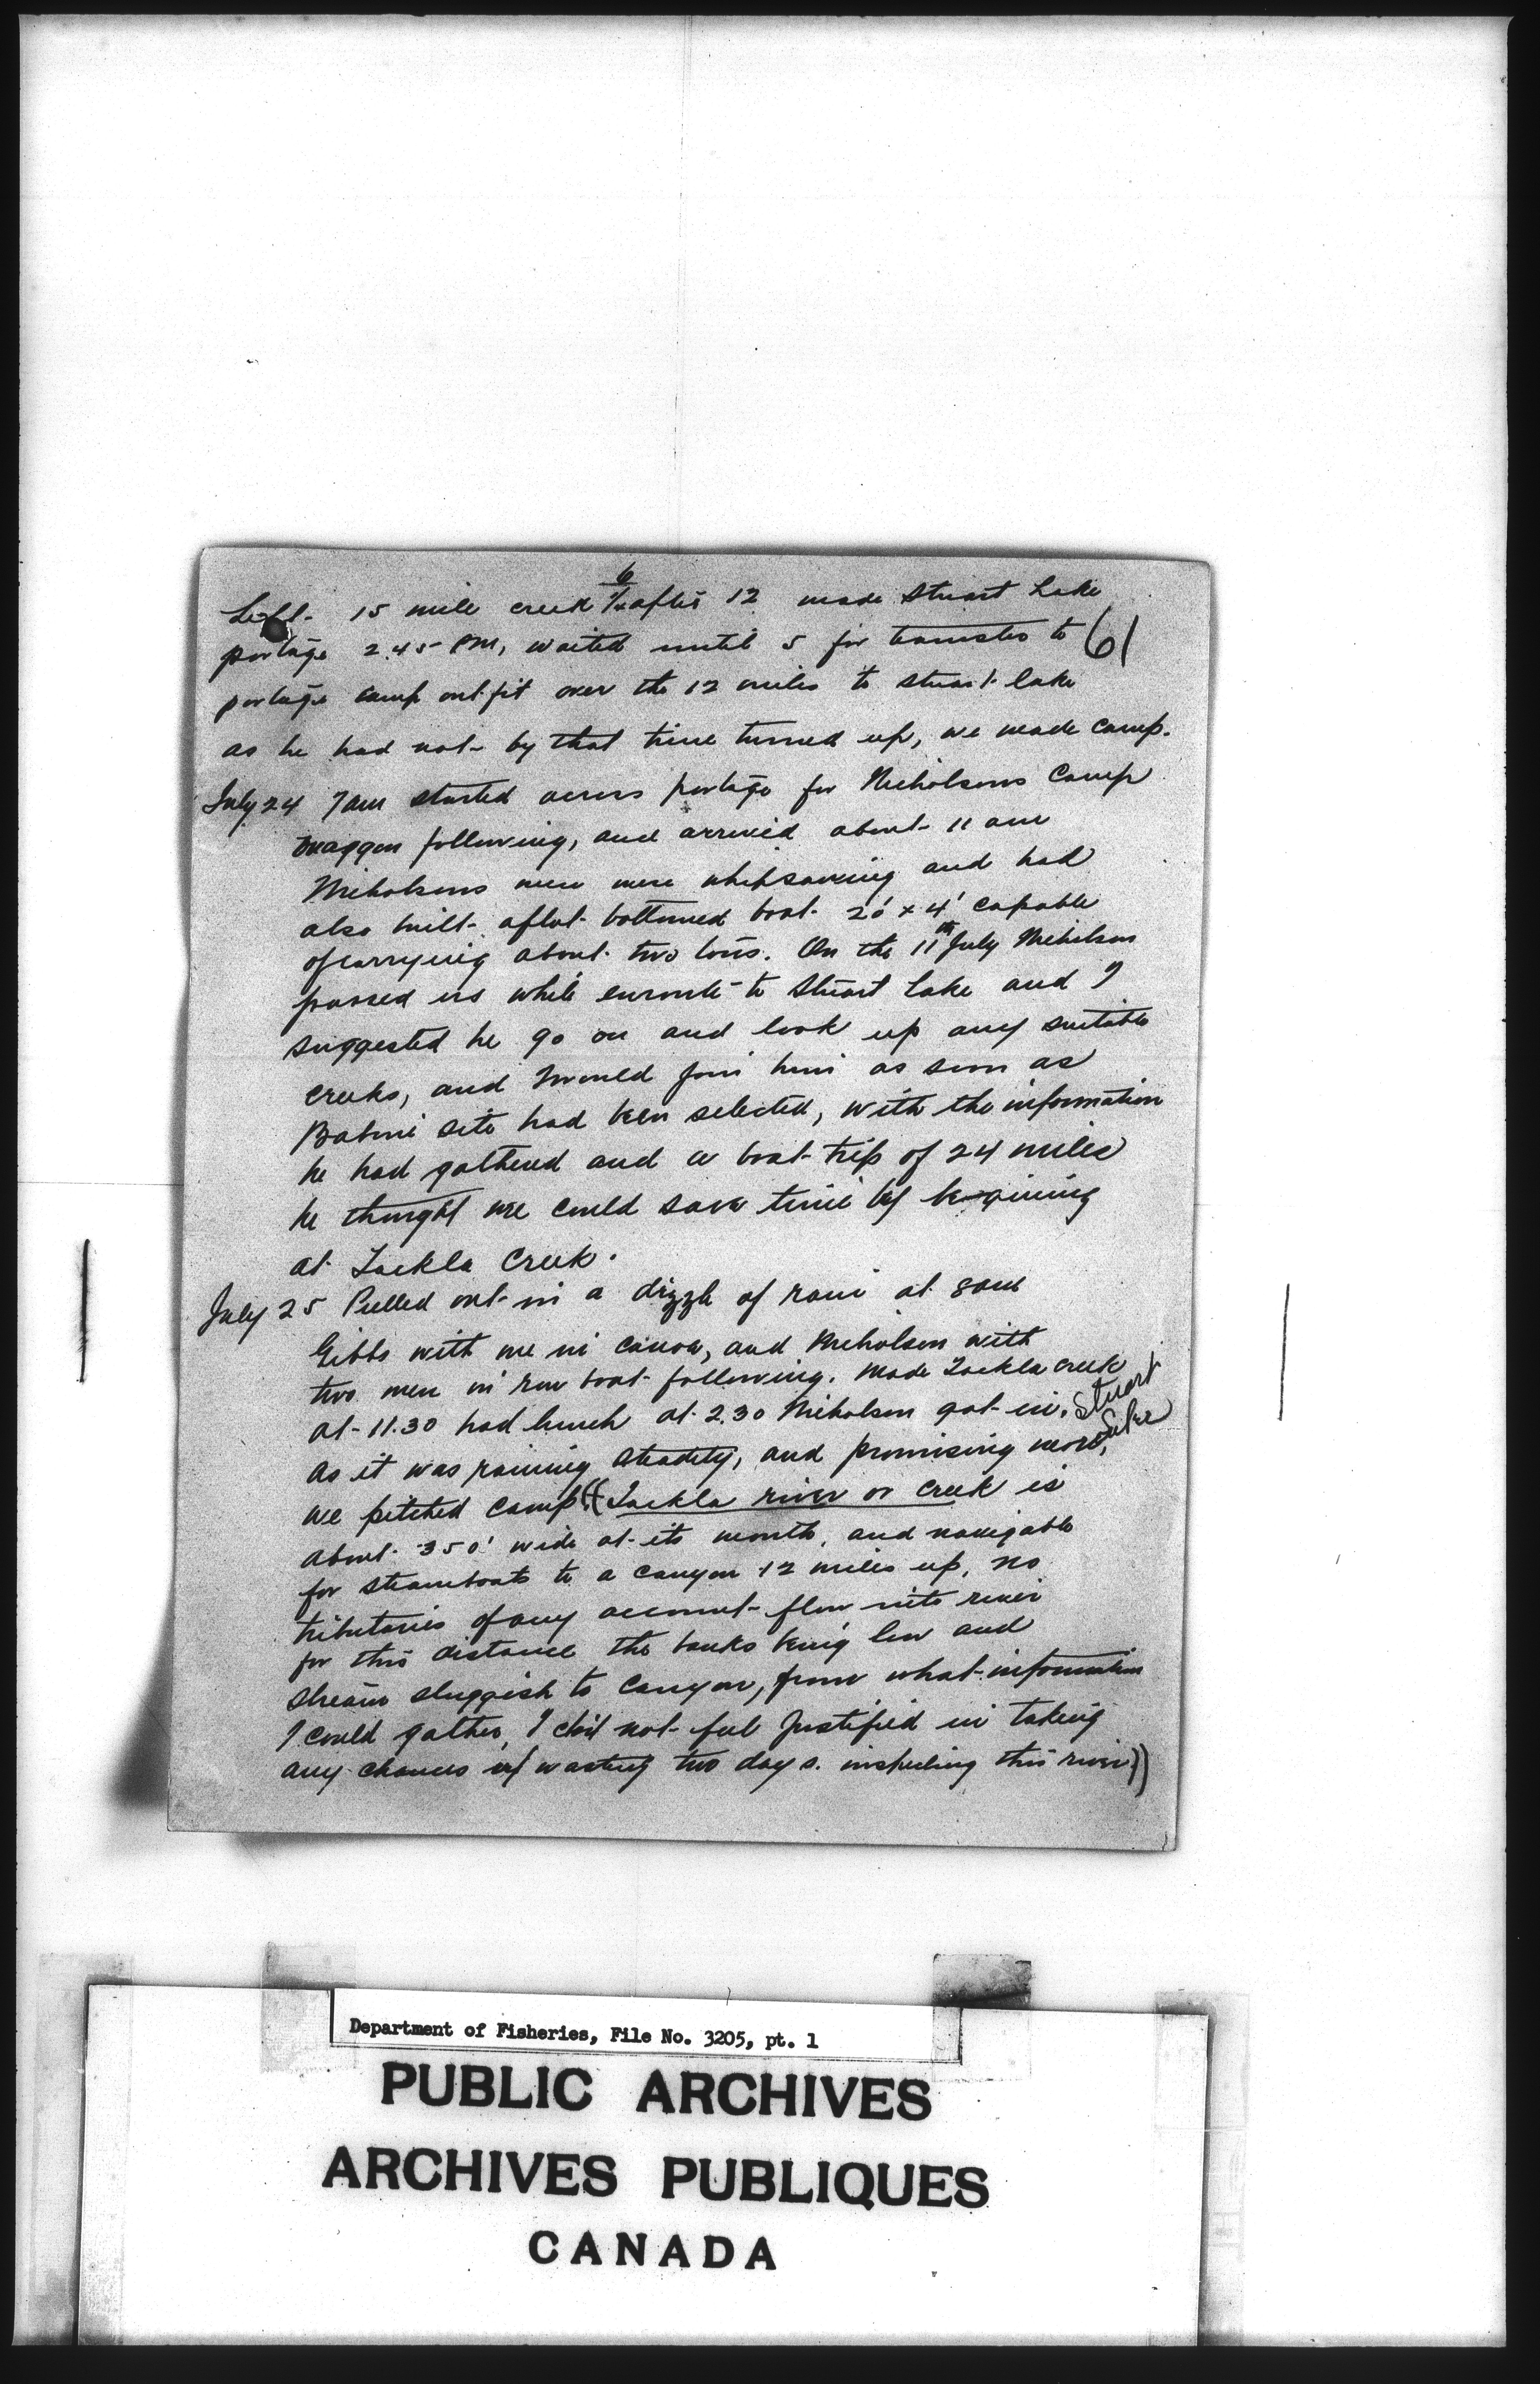 6
Left 15 mile creek after 12 made Stuart Lake
portage 2.45 PM, waited until 5 for teamster to
61
portage camp outfit over the 12 miles to Stuart lake
as he had not by that time turned up, we made camp.
July 24 7am started across portage for Nicholsons Camp
waggon following, and arrived about 11 am
Nicholsons men were whipsawing and had
also built aflat bottomed boat 20' x 4' capable
of carrying about two tons. On the 11th July Nicholson
passed us while enroute to Stuart Lake and I
suggested he go on and look up any suitable
creeks, and I would join him as soon as
Babine site had been selected, with the information
he had gathered and a boat trip of 24 miles
he thought we could save time by begining
at Tackla Creek.
July 25 Pulled out in a dizzle of rain at 8am
Gibbs with me in canoe, and Nicholson with
two men in row boat following. Made Tackla creek
at 11.30 had lunch at 2.30 Nicholson got in. Stuart
Lake
As it was raining steadily, and promising more,
we pitched camp. ((Tackla river or creek is
about 350' wide at its mouth, and navigable
for steamboats to a canyon 12 miles up, no
tributaries of any account flow into river
for this distance the banks being low and
stream sluggish to canyon, from what information
I could gather, I did not feel justified in taking
any chances of wasting two days. inspecting this river))
Department of Fisheries, File No. 3205, pt. 1
PUBLIC ARCHIVES
ARCHIVES PUBLIQUES
CANADA